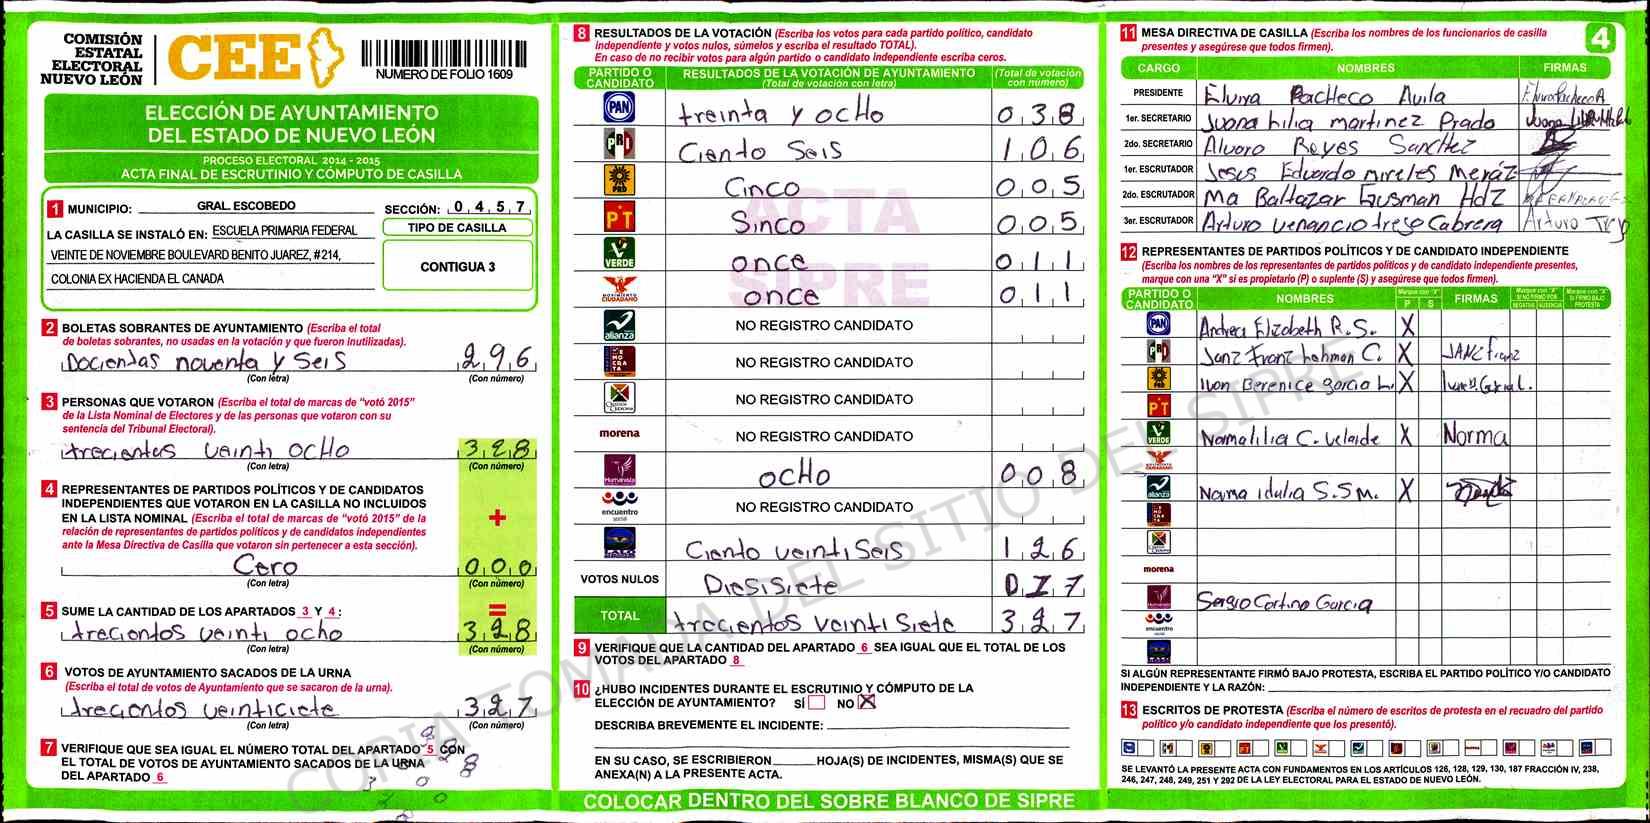 COMISIÓN
ESTATAL
ELECTORAL
NUEVO LEÓN
CEE
NUMERO DE FOLIO 1609
ELECCIÓN DE AYUNTAMIENTO
DEL ESTADO DE NUEVO LEÓN
PROCESO ELECTORAL 2014 - 2015
ACTA FINAL DE ESCRUTINIO Y CÓMPUTO DE CASILLA
1 MUNICIPIO: GRAL. ESCOBEDO SECCIÓN: 0 4 5 7
LA CASILLA SE INSTALÓ EN: ESCUELA PRIMARIA FEDERAL
VEINTE DE NOVIEMBRE BOULEVARD BENITO JUAREZ, #214,
COLONIA EX HACIENDA EL CANADA
TIPO DE CASILLA
CONTIGUA 3
2 BOLETAS SOBRANTES DE AYUNTAMIENTO (Escriba el total
de boletas sobrantes, no usadas en la votación y que fueron inutilizadas).
Docientas noventa y Seis 296
(Con letra) (Con número)
3 PERSONAS QUE VOTARON (Escriba el total de marcas de "votó 2015"
de la Lista Nominal de Electores y de las personas que votaron con su
sentencia del Tribunal Electoral).
trecientas veinti ocHo 328
(Con letra) (Con número)
4 REPRESENTANTES DE PARTIDOS POLÍTICOS Y DE CANDIDATOS
INDEPENDIENTES QUE VOTARON EN LA CASILLA NO INCLUIDOS
EN LA LISTA NOMINAL (Escriba el total de marcas de "votó 2015" de la
relación de representantes de partidos políticos y de candidatos independientes
ante la Mesa Directiva de Casilla que votaron sin pertenecer a esta sección).
+
Cero 000
(Con letra) (Con número)
=
5 SUME LA CANTIDAD DE LOS APARTADOS 3 Y 4:
trecientos veinti ocho 328
(Con letra) (Con número)
6 VOTOS DE AYUNTAMIENTO SACADOS DE LA URNA
(Escriba el total de votos de Ayuntamiento que se sacaron de la urna).
trecientos veinticiete 327
(Con letra) (Con número)
7 VERIFIQUE QUE SEA IGUAL EL NÚMERO TOTAL DEL APARTADO 5 CON
EL TOTAL DE VOTOS DE AYUNTAMIENTO SACADOS DE LA URNA
DEL APARTADO 6
8 RESULTADOS DE LA VOTACIÓN (Escriba los votos para cada partido político, candidato
independiente y votos nulos, súmelos y escriba el resultado TOTAL).
En caso de no recibir votos para algún partido o candidato independiente escriba ceros.
PARTIDO O CANDIDATO RESULTADOS DE LA VOTACIÓN DE AYUNTAMIENTO (Total de votación con letra) (Total de votación con número)
PAN treinta y ocHo 038
PRI Ciento Seis 106
PRD Cinco 005
PT Sinco 005
VERDE once 011
MOVIMIENTO CIUDADANO once 011
alianza NO REGISTRO CANDIDATO
DEMOCRATA NO REGISTRO CANDIDATO
NO REGISTRO CANDIDATO
morena NO REGISTRO CANDIDATO
Humanista ocHo 008
encuentro social NO REGISTRO CANDIDATO
Ciento veinti Seis 126
VOTOS NULOS Diesisiete 017
TOTAL trecientos veinti Siete 327
ACTA
SIPRE
9 VERIFIQUE QUE LA CANTIDAD DEL APARTADO 6 SEA IGUAL QUE EL TOTAL DE LOS
VOTOS DEL APARTADO 8
10 ¿HUBO INCIDENTES DURANTE EL ESCRUTINIO Y CÓMPUTO DE LA
ELECCIÓN DE AYUNTAMIENTO? SÍ NO X
DESCRIBA BREVEMENTE EL INCIDENTE:
EN SU CASO, SE ESCRIBIERON HOJA(S) DE INCIDENTES, MISMA(S) QUE SE
ANEXA(N) A LA PRESENTE ACTA.
COLOCAR DENTRO DEL SOBRE BLANCO DE SIPRE
11 MESA DIRECTIVA DE CASILLA (Escriba los nombres de los funcionarios de casilla
presentes y asegúrese que todos firmen).
4
CARGO NOMBRES FIRMAS
PRESIDENTE Elvira Pacheco Avila Elvira Pacheco A
1er. SECRETARIO Juana Lilia martinez Prado
2do. SECRETARIO Alvaro Reyes SancHez
1er. ESCRUTADOR Jesus Eduardo mireles
2do. ESCRUTADOR Ma Baltazar Gusman HdZ
3er. ESCRUTADOR Arturo venancio trejo Cabrera Arturo
12 REPRESENTANTES DE PARTIDOS POLÍTICOS Y DE CANDIDATO INDEPENDIENTE
(Escriba los nombres de los representantes de partidos políticos y de candidato independiente presentes,
marque con una "X" si es propietario (P) o suplente (S) y asegúrese que todos firmen).
PARTIDO O CANDIDATO NOMBRES Marque con "X" P S FIRMAS Marque con "X" SI NO FIRMÓ POR NEGATIVA AUSENCIA Marque con "X" SI FIRMÓ BAJO PROTESTA
PAN Andrea Elizabeth R.S. X
PRI Janz Franz Lohman C. X
PRD Ivon Berenice garcia L. X
PT
VERDE Norma lilia C. X Norma
MOVIMIENTO CIUDADANO
alianza Norma idalia S.S.M. X
morena
Humanista Sergio Cortino Garcia
encuentro social
SI ALGÚN REPRESENTANTE FIRMÓ BAJO PROTESTA, ESCRIBA EL PARTIDO POLÍTICO Y/O CANDIDATO
INDEPENDIENTE Y LA RAZÓN:
13 ESCRITOS DE PROTESTA (Escriba el número de escritos de protesta en el recuadro del partido
político y/o candidato independiente que los presentó).
SE LEVANTÓ LA PRESENTE ACTA CON FUNDAMENTOS EN LOS ARTÍCULOS 126, 128, 129, 130, 187 FRACCIÓN IV, 238,
246, 247, 248, 249, 251 Y 292 DE LA LEY ELECTORAL PARA EL ESTADO DE NUEVO LEÓN.
COPIA TOMADA DEL SITIO DEL SIPRE